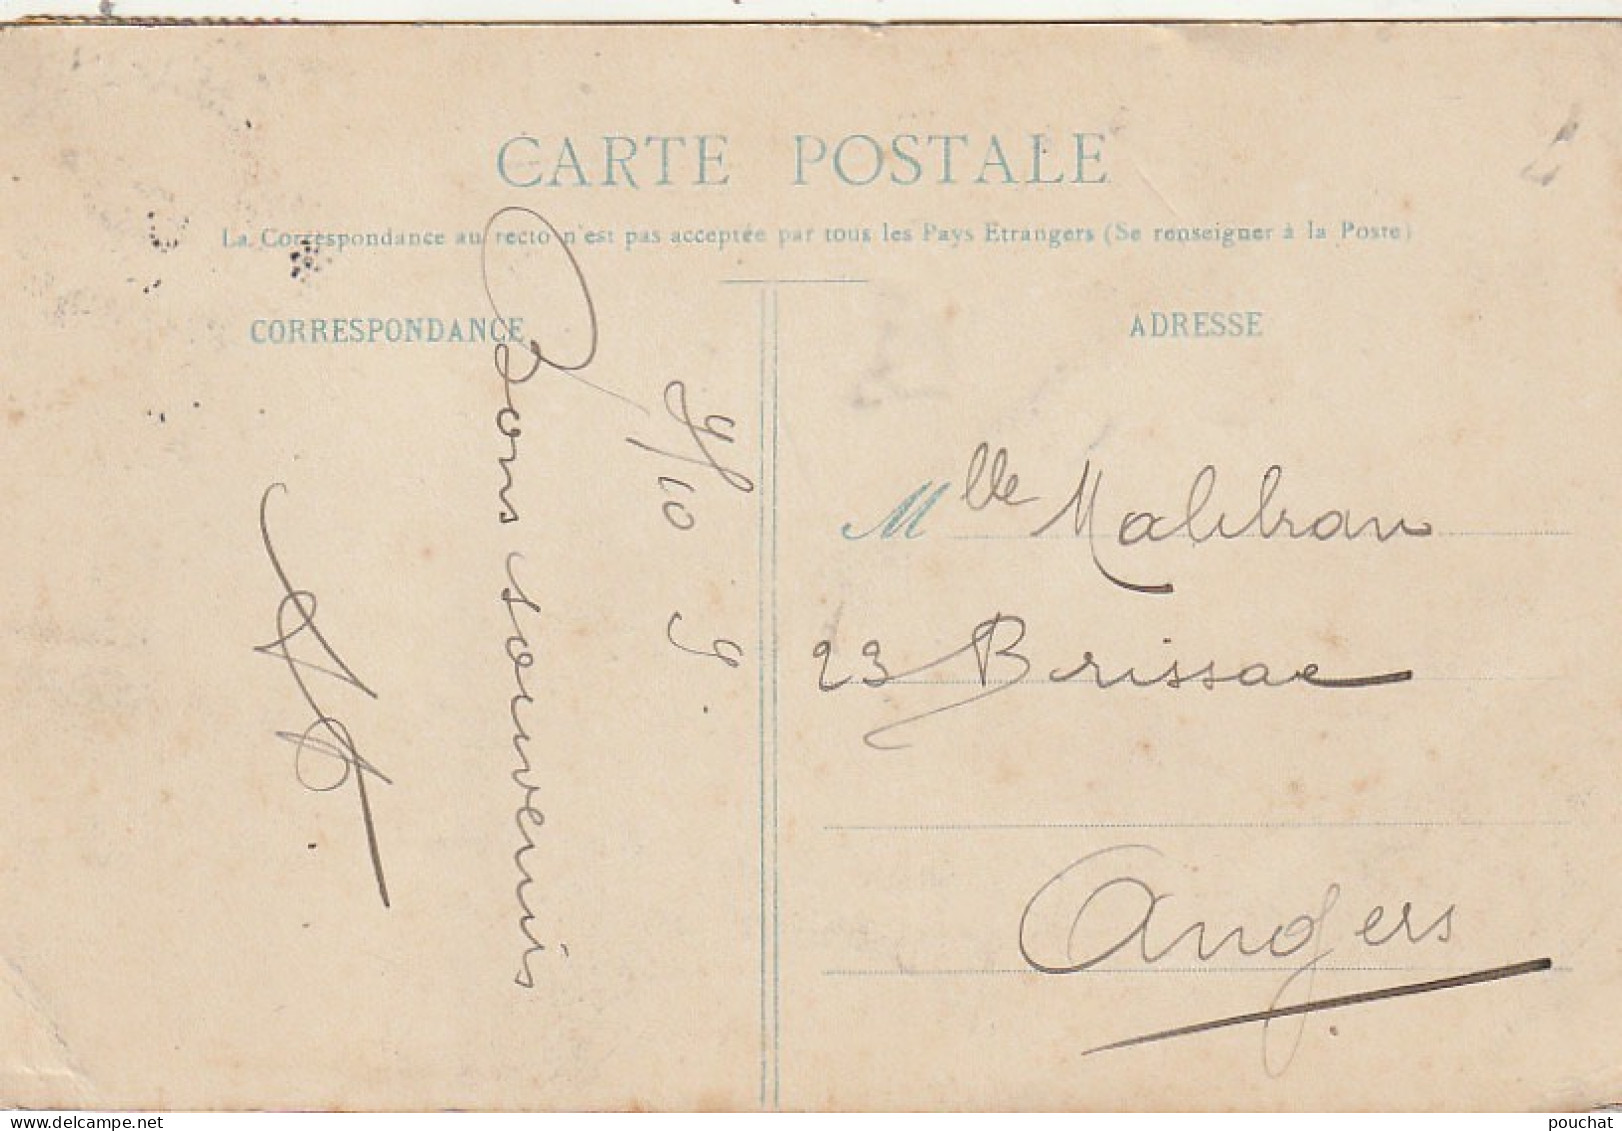 CARTE POSTALE
La Correspondance au recto n'est pas acceptée par tous les Pays Etrangers (Se renseigner à la Poste)
CORRESPONDANCE
Bons souvenirs
ADRESSE
Mlle Malibran
23 Brissac
Angers
pouchat